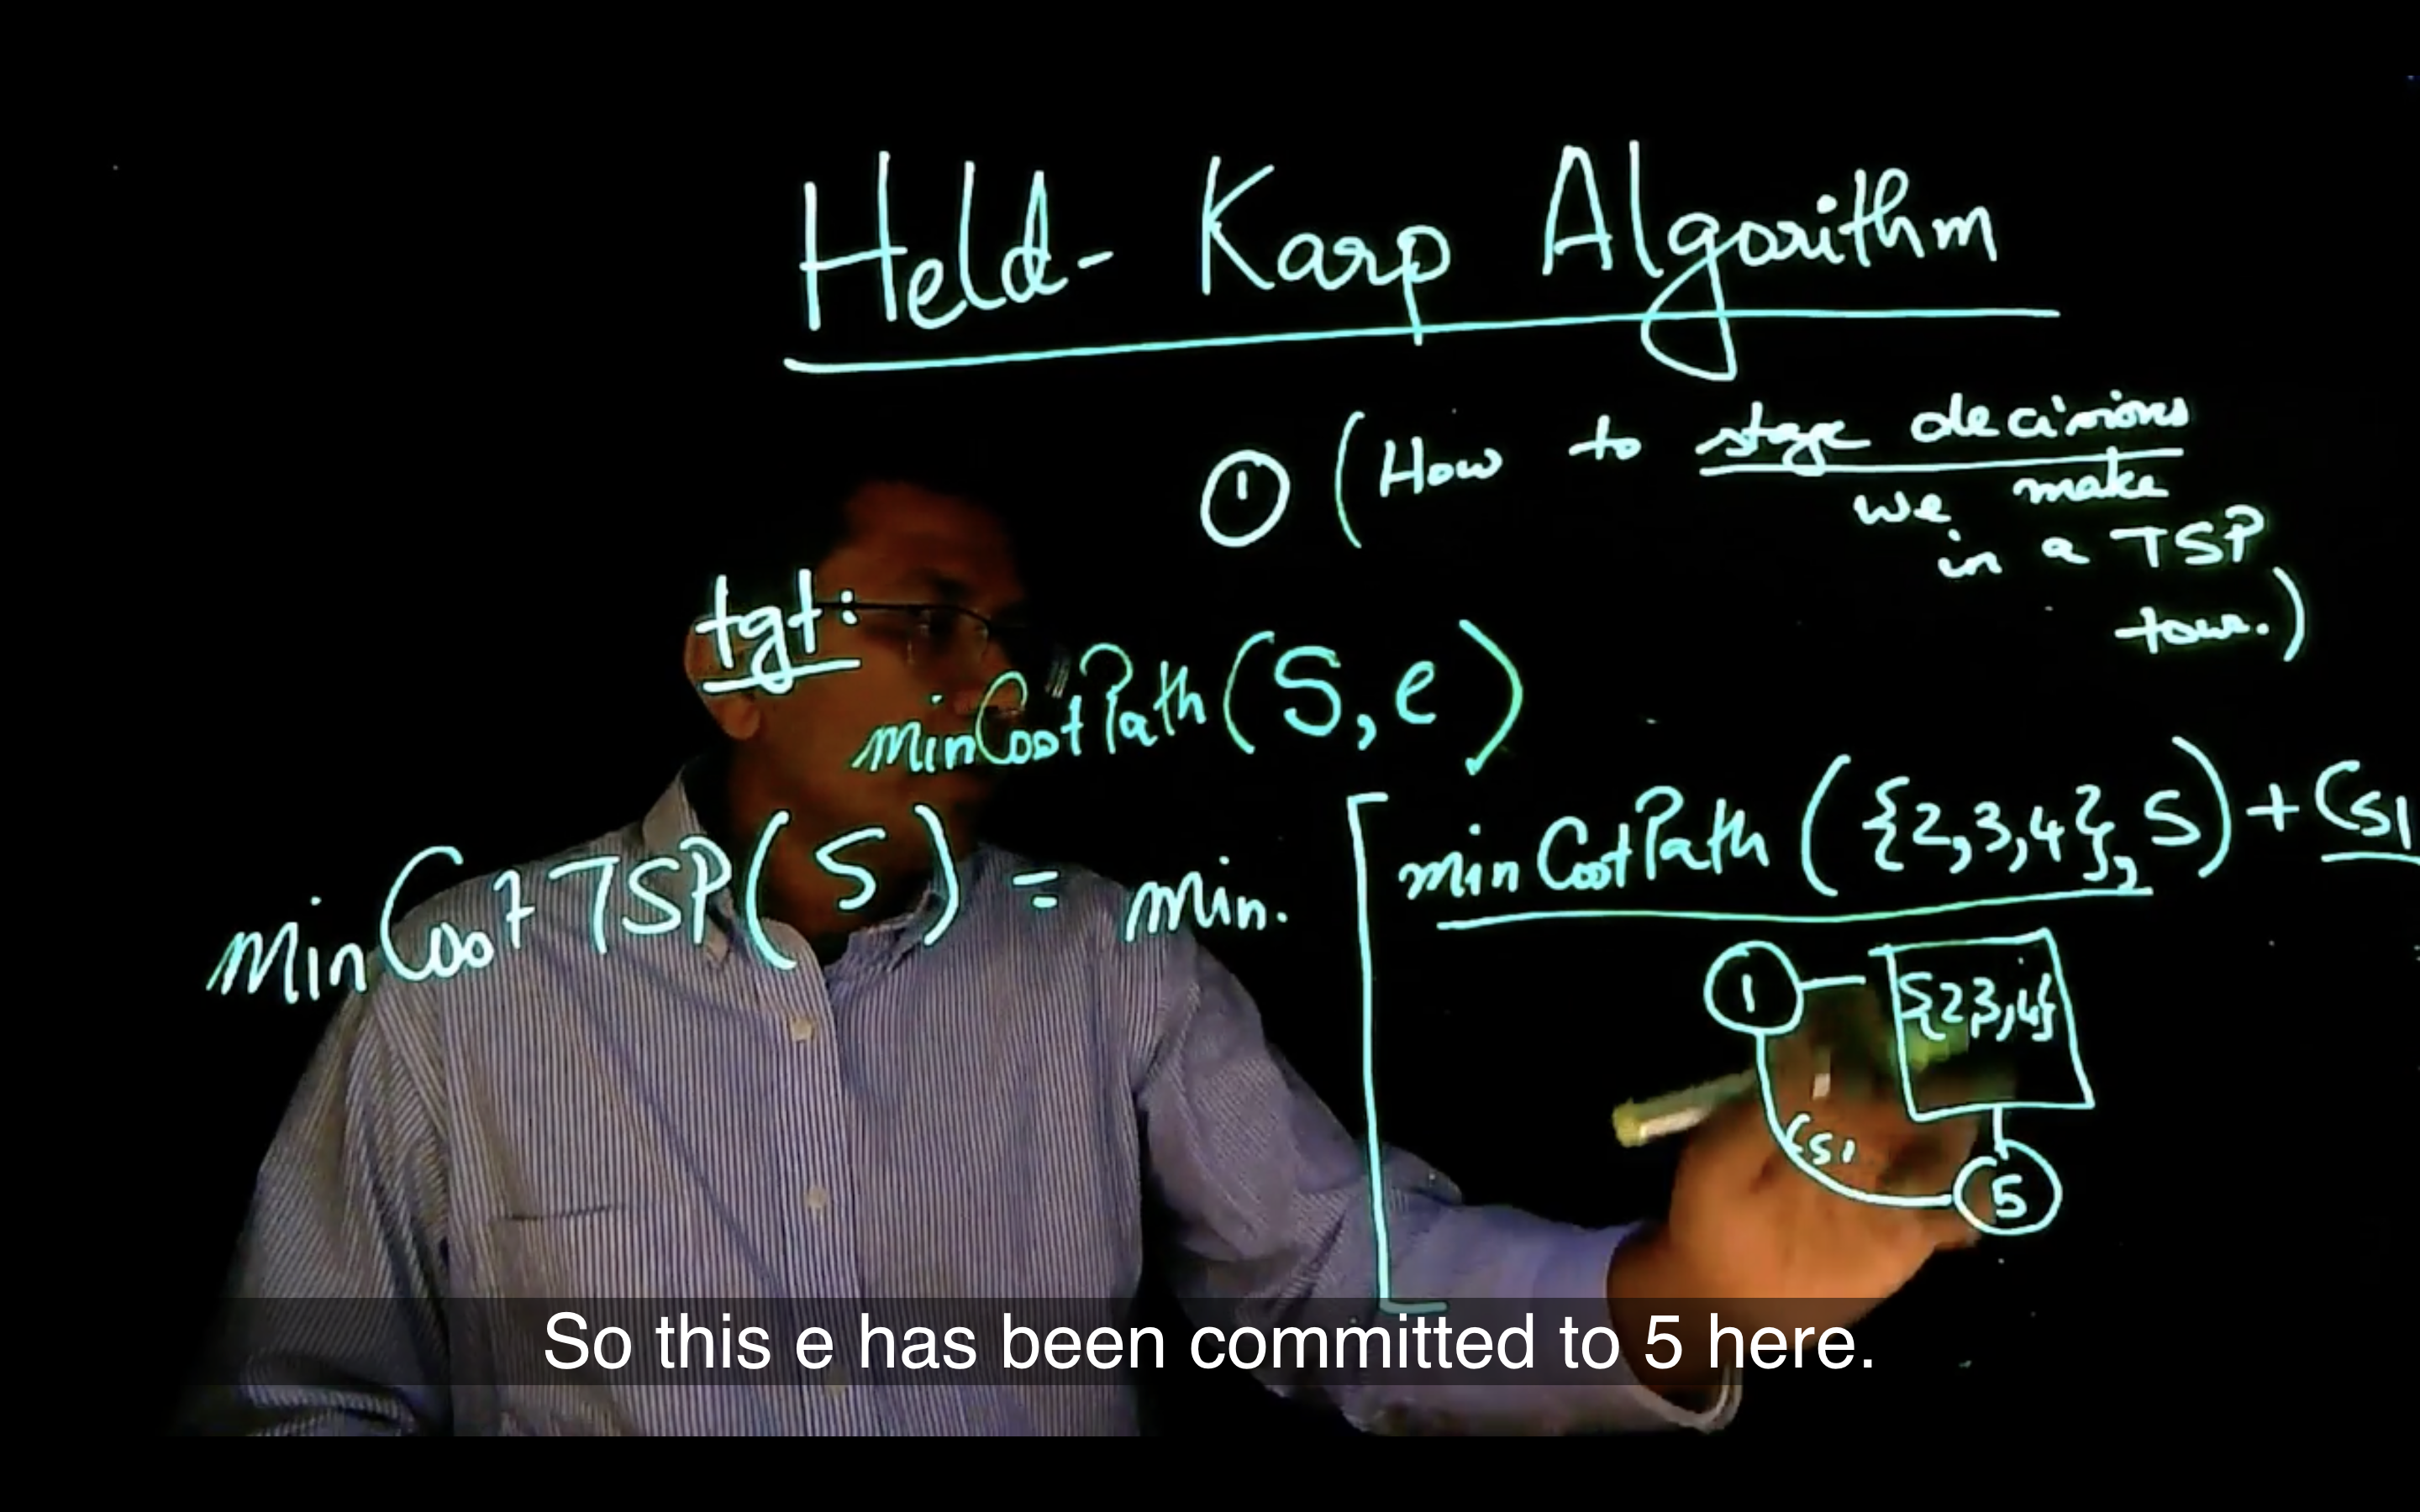 Held-Karp Algorithm
① (How to stage decisions
we make
in a TSP
tour.)
tgt:
minCostPath(S, e)
minCostTSP(5) = min. [ minCostPath({2,3,4}, 5) + C51
1 {2,3,4}
C51
5
So this e has been committed to 5 here.